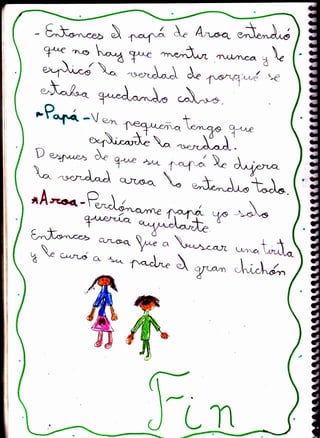 - Entonces el papá de Aroa entendió
que no hay que mentir nunca y le
explicó la verdad de porqué se
estaba quedando calvo.
~Papá - Ven pequeña tengo que
explicarte la verdad.
Despues de que su papá le dijera
la verdad aroa lo entendio todo.
*Aroa - Perdóname papá yo solo
quería ayudarte
Entonces aroa fue a buscar una tirita
y le curó a su padre el gran chichón
Fin